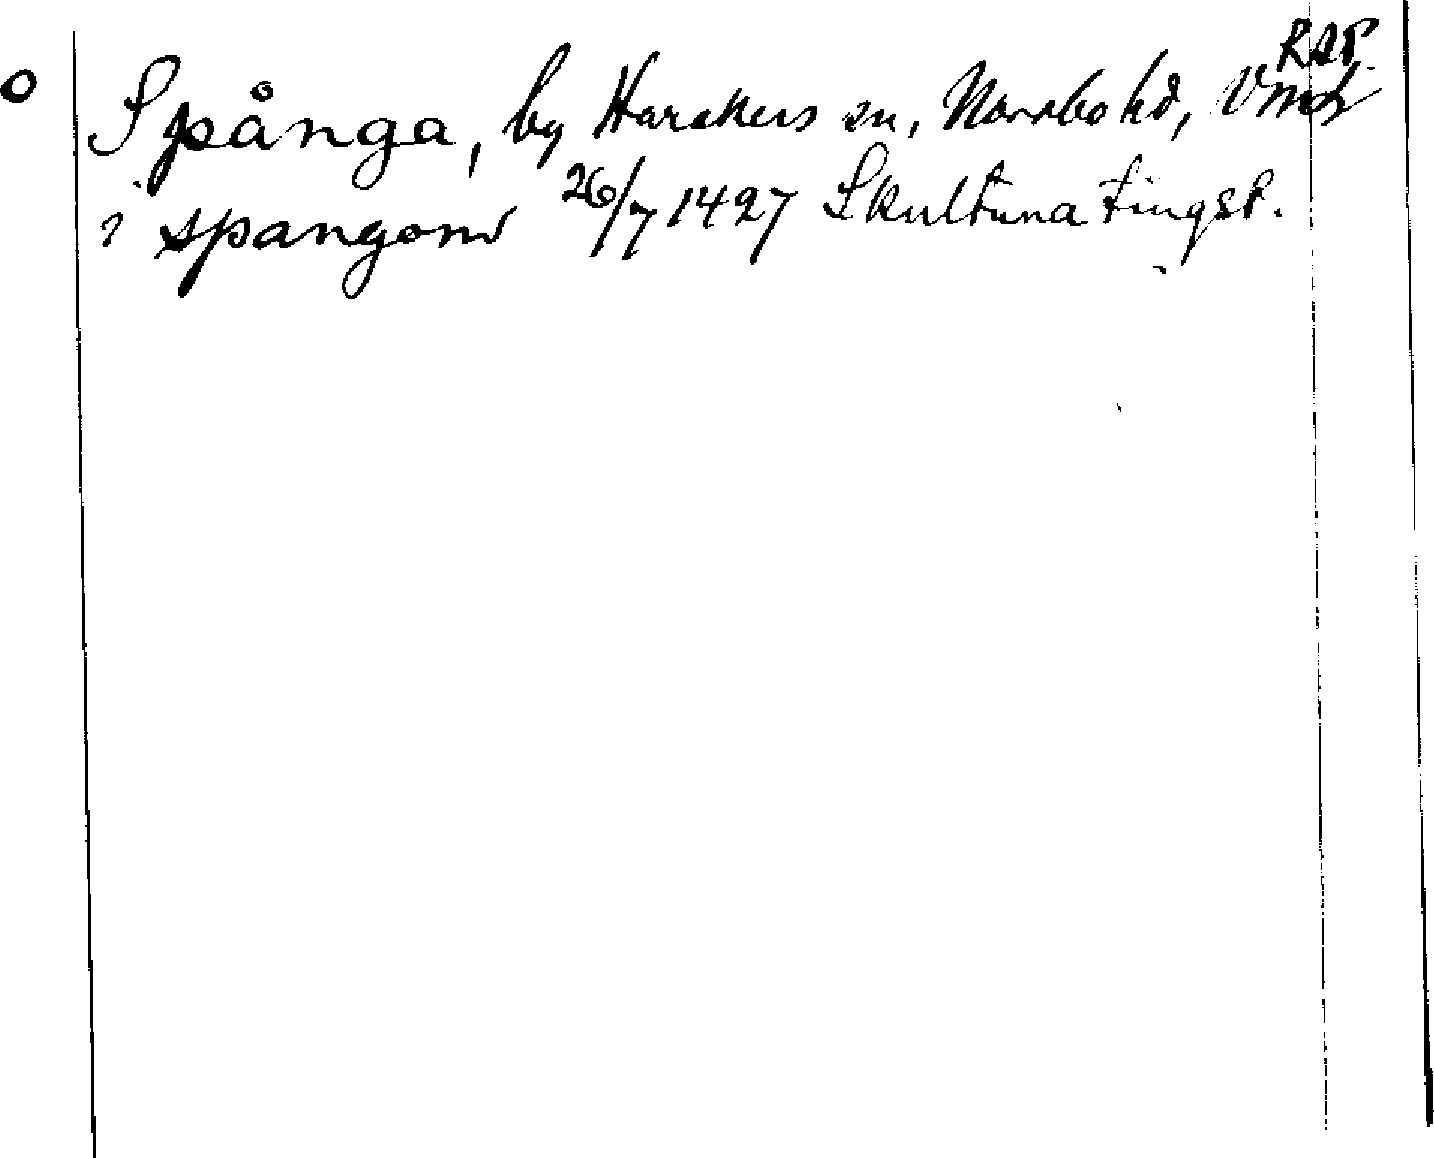 RAP.
O Spånga, by Harakers sn, Norrbo hd, Vml
i spangom 26/7 1427 Skultuna tingst.